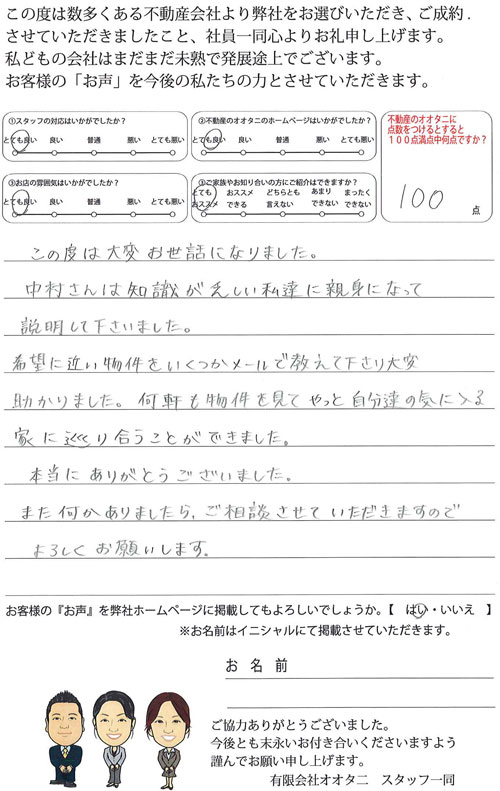 この度は数多くある不動産会社より弊社をお選びいただき、ご成約.
させていただきましたこと、社員一同心よりお礼申し上げます。
私どもの会社はまだまだ未熟で発展途上でございます。
お客様の「お声」を今後の私たちの力とさせていただきます。
①スタッフの対応はいかがでしたか?
とても良い 良い 普通 悪い とても悪い
②不動産のオオタニのホームページはいかがでしたか?
とても良い 良い 普通 悪い とても悪い
③お店の雰囲気はいかがでしたか?
とても良い 良い 普通 悪い とても悪い
ご家族やお知り合いの方にご紹介はできますか?
とても おススメ どちらとも あまり まったく
おススメ できる 言えない できない できない
不動産のオオタニに
点数をつけるとすると
100点満点中何点ですか?
100
点
この度は大変お世話になりました。
中村さんは知識が乏しい私達に親身になって
説明して下さいました。
希望に近い物件をいくつかメールで教えて下さり大変
助かりました。何軒も物件を見てやっと自分達の気に入る
家に巡り合うことができました。
本当にありがとうございました。
また何かありましたら、ご相談させていただきますので
よろしくお願いします。
お客様の『お声』を弊社ホームページに掲載してもよろしいでしょうか。【 はい・いいえ 】
※お名前はイニシャルにて掲載させていただきます。
お名前
ご協力ありがとうございました。
今後とも末永いお付き合いくださいますよう
謹んでお願い申し上げます。
有限会社オオタニ スタッフ一同